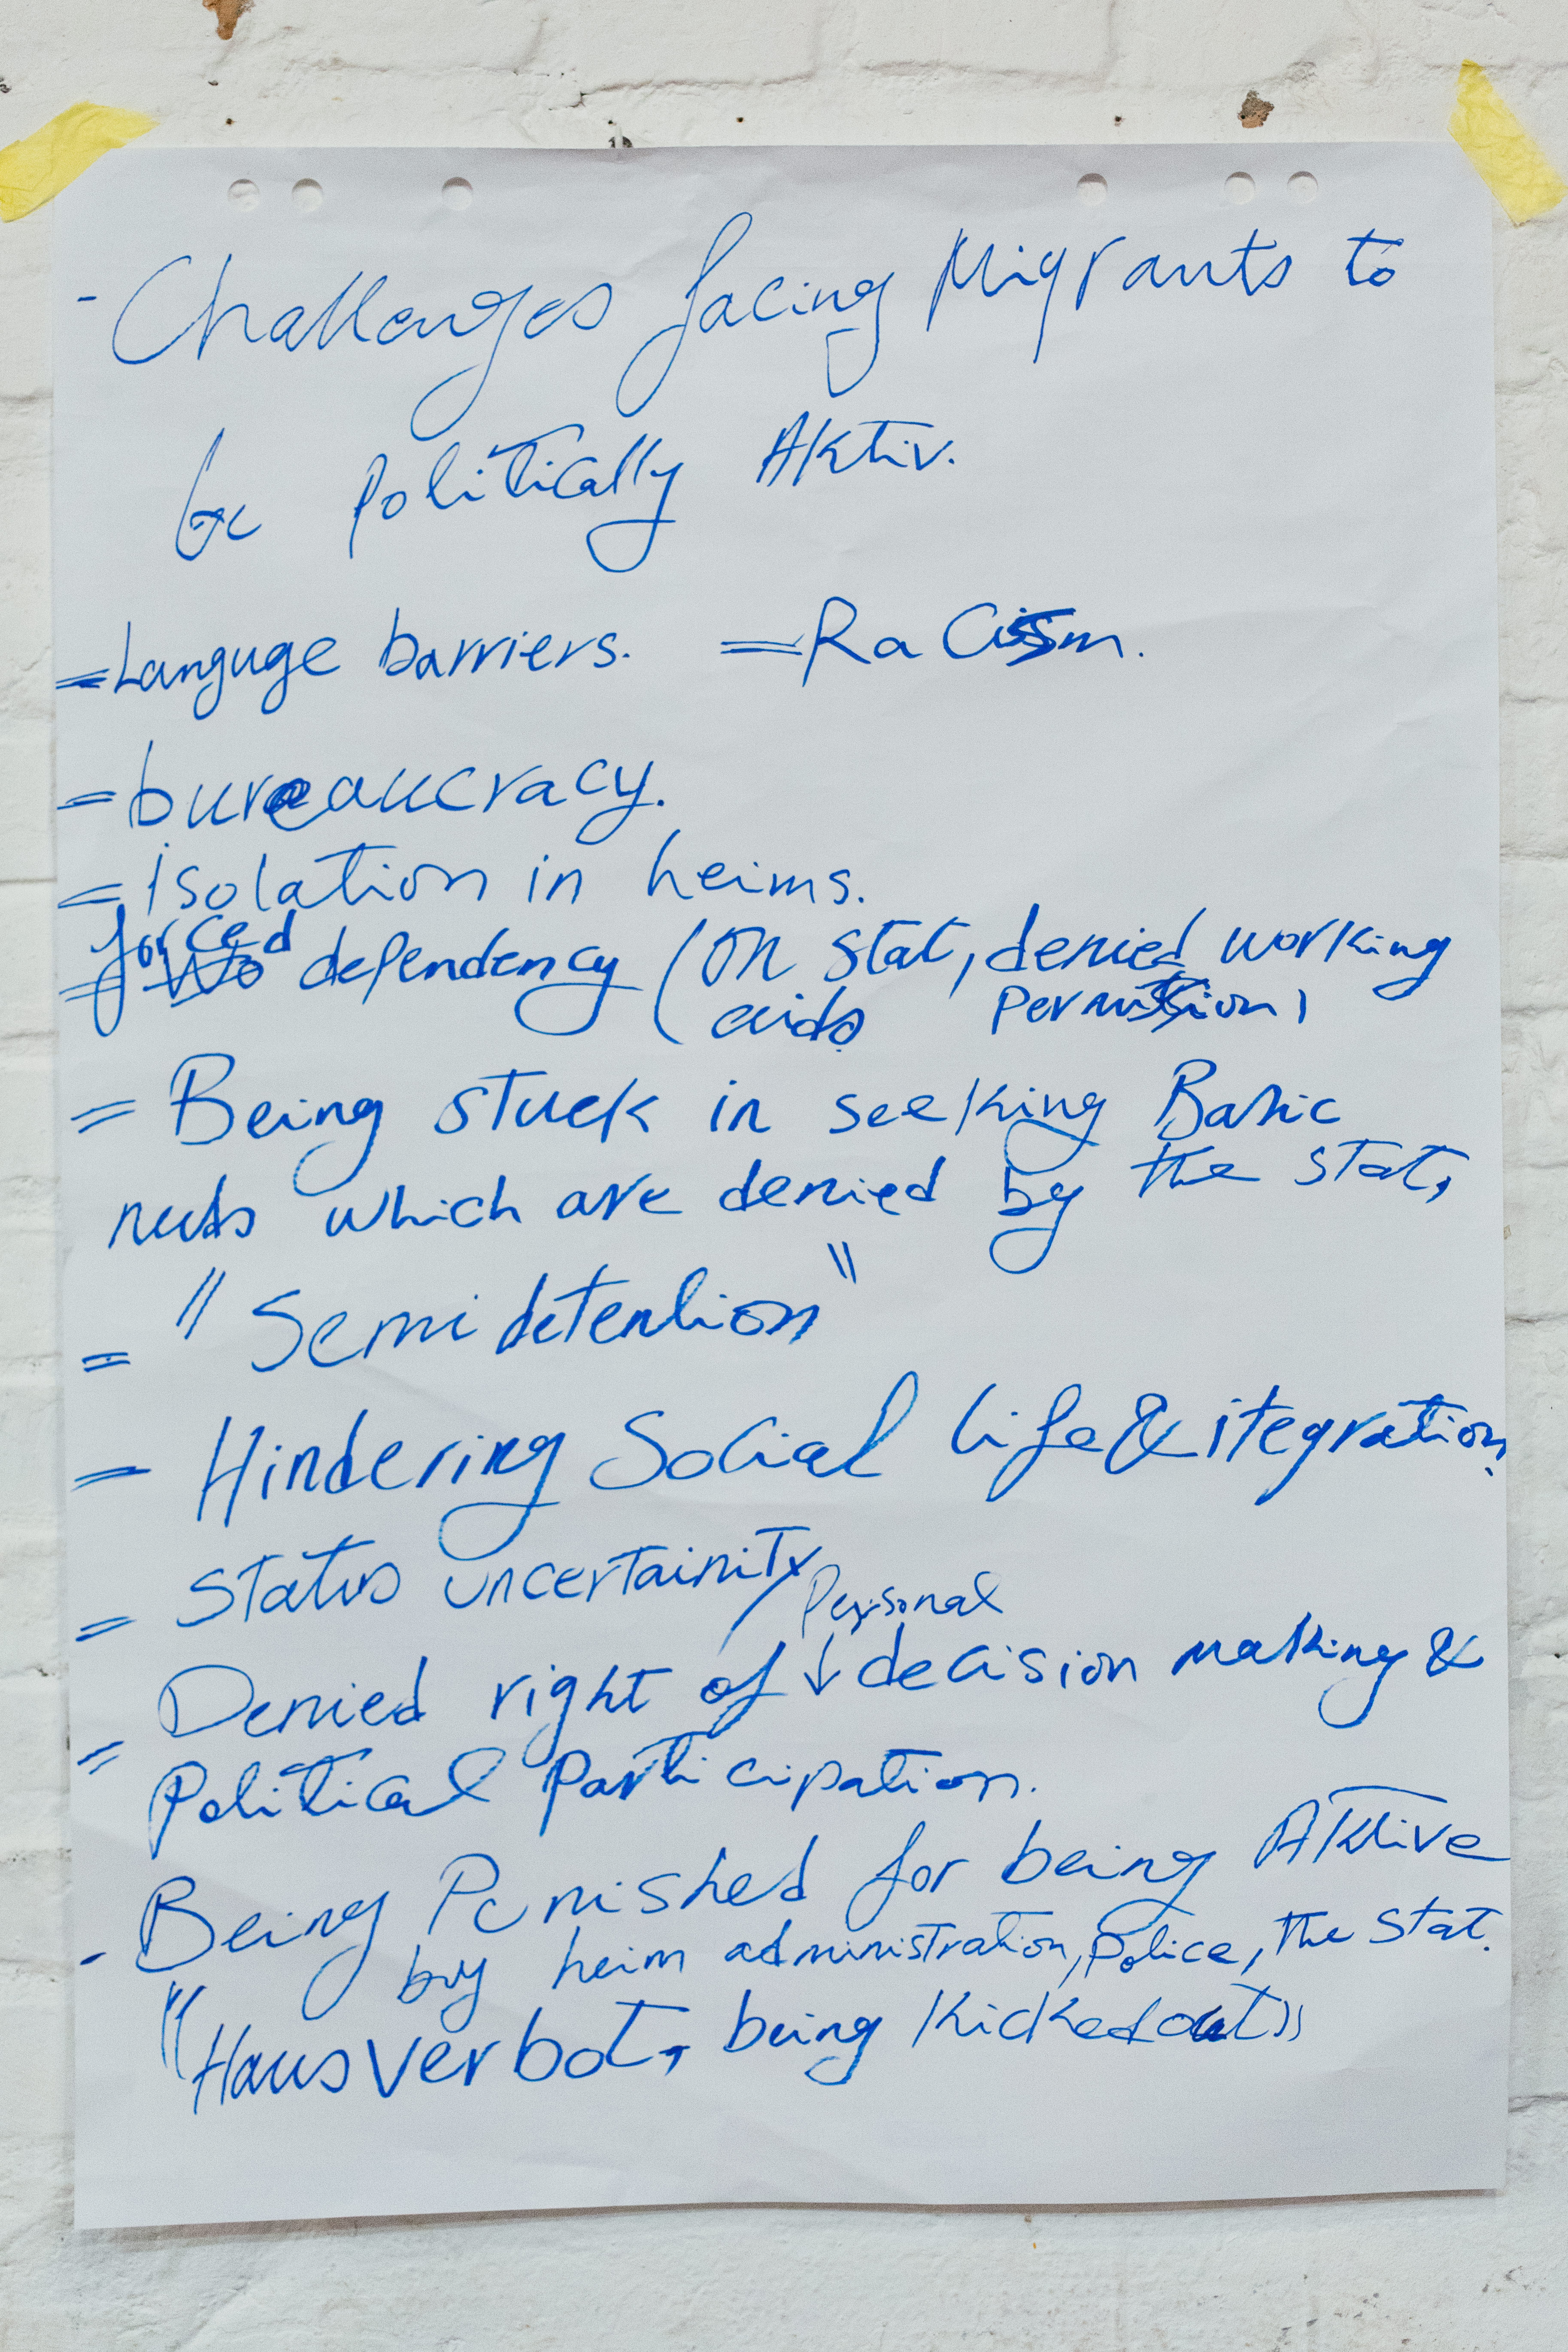 - Challenges facing Migrants to
be Politically Aktiv.
= Languge barriers. = Racism.
= bureaucracy.
= isolation in heims.
= forced dependency (on stat, denied working
aids permission,
= Being stuck in seeking Basic
neds which are denied by the stat,
= "Semi detention"
= Hindering Social life & itegration.
= Status uncertainity
Personal
= Denied right of ↓ decision making &
Political Participation.
- Being Punished for being Aktive
by heim administration, Police, the stat.
"Hausverbot, being kicked out"